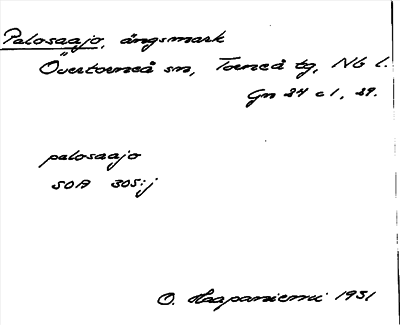 Palosaajo, ängsmark
Övertorneå sn, Torneå tg, Nb l.
Gn 24 c 1, 29.
palosaajo
SOA 305:j
O. Haapaniemi 1931